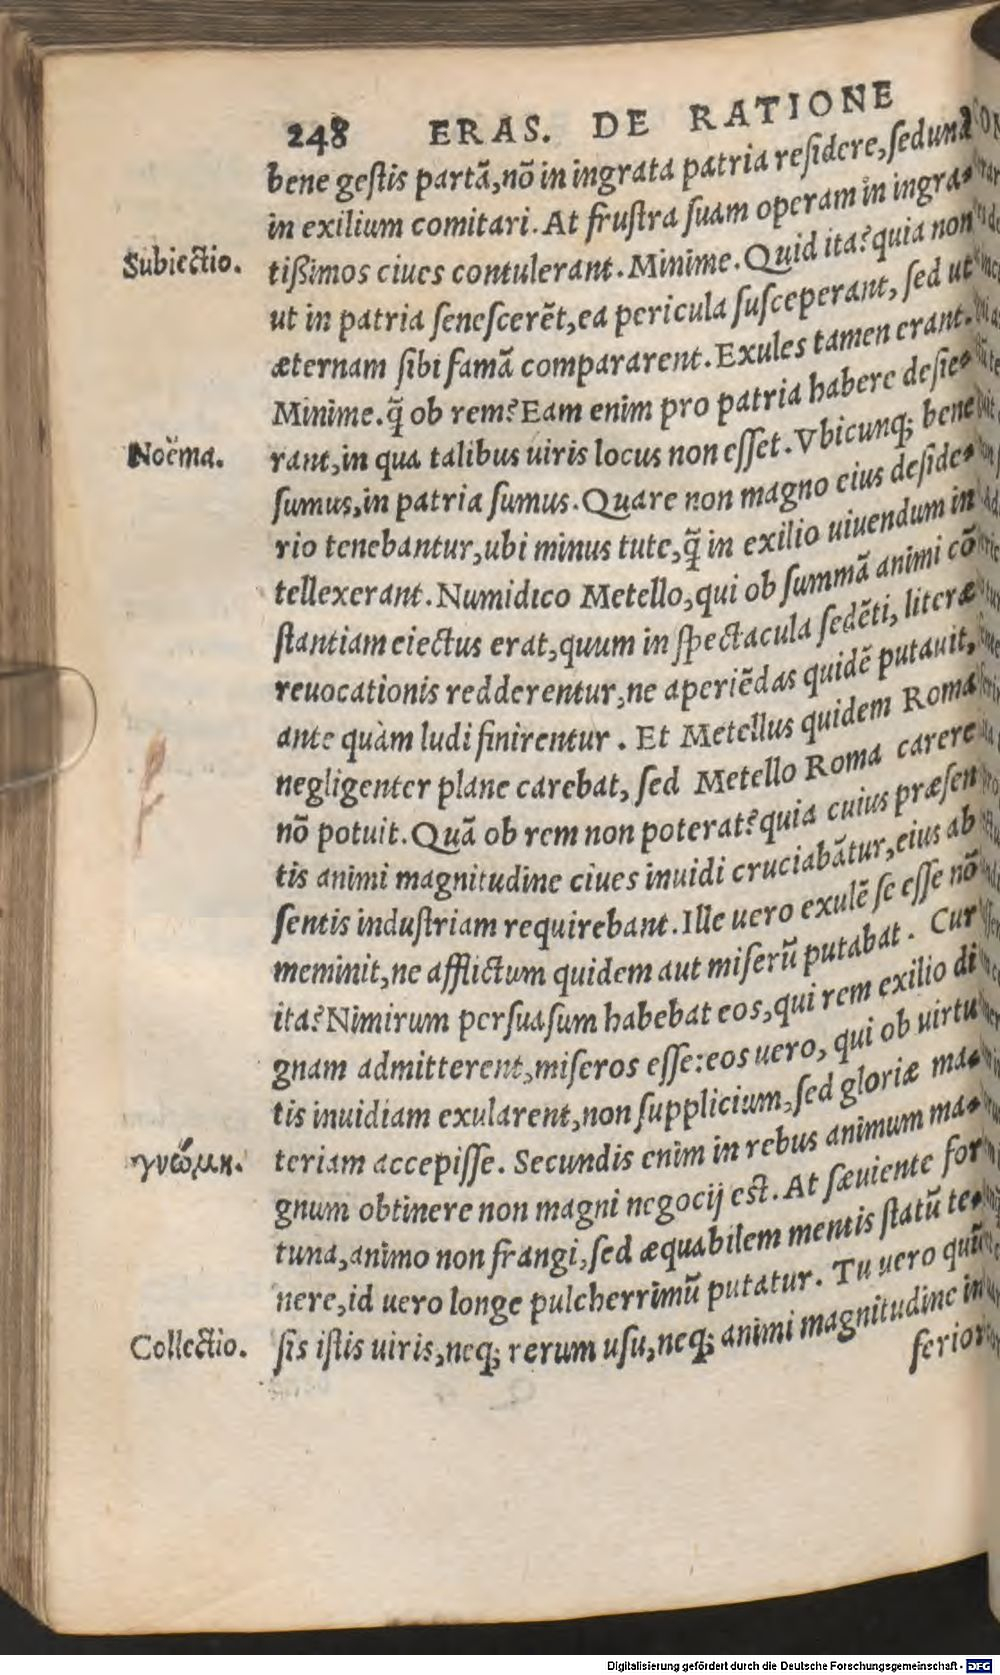 248 ERAS. DE RATIONE
bene gestis partã, nõ in ingrata patria residere, sed una
in exilium comitari. At frustra suam operam in ingra-
Subiectio.
tißimos ciues contulerant. Minime. Quid ita? quia non
ut in patria senescerẽt, ea pericula susceperant, sed ut
æternam sibi famã compararent. Exules tamen erant.
Minime. q̃ ob rem? Eam enim pro patria habere desie-
Noëma.
rant, in qua talibus uiris locus non esset. Vbicunq; bene
sumus, in patria sumus. Quare non magno eius deside-
rio tenebantur, ubi minus tute, q̃ in exilio uiuendum in
tellexerant. Numidico Metello, qui ob summã animi cõ
stantiam eiectus erat, quum in spectacula sedẽti, literæ
reuocationis redderentur, ne aperiẽdas quidẽ putauit,
ante quàm ludi finirentur. Et Metellus quidem Roma
negligenter plane carebat, sed Metello Roma carere
nõ potuit. Quã ob rem non poterat? quia cuius præsen
tis animi magnitudine ciues inuidi cruciabãtur, eius ab
sentis industriam requirebant. Ille uero exulẽ se esse nõ
meminit, ne afflictum quidem aut miserũ putabat. Cur
ita? Nimirum persuasum habebat eos, qui rem exilio di
gnam admitterent, miseros esse: eos uero, qui ob uirtu
tis inuidiam exularent, non supplicium, sed gloriæ ma-
γνώμη.
teriam accepisse. Secundis enim in rebus animum ma-
gnum obtinere non magni negocij est. At sæuiente for
tuna, animo non frangi, sed æquabilem mentis statũ te-
nere, id uero longe pulcherrimũ putatur. Tu uero quũ
Collectio.
sis istis uiris, neq; rerum usu, neq; animi magnitudine in
ferior